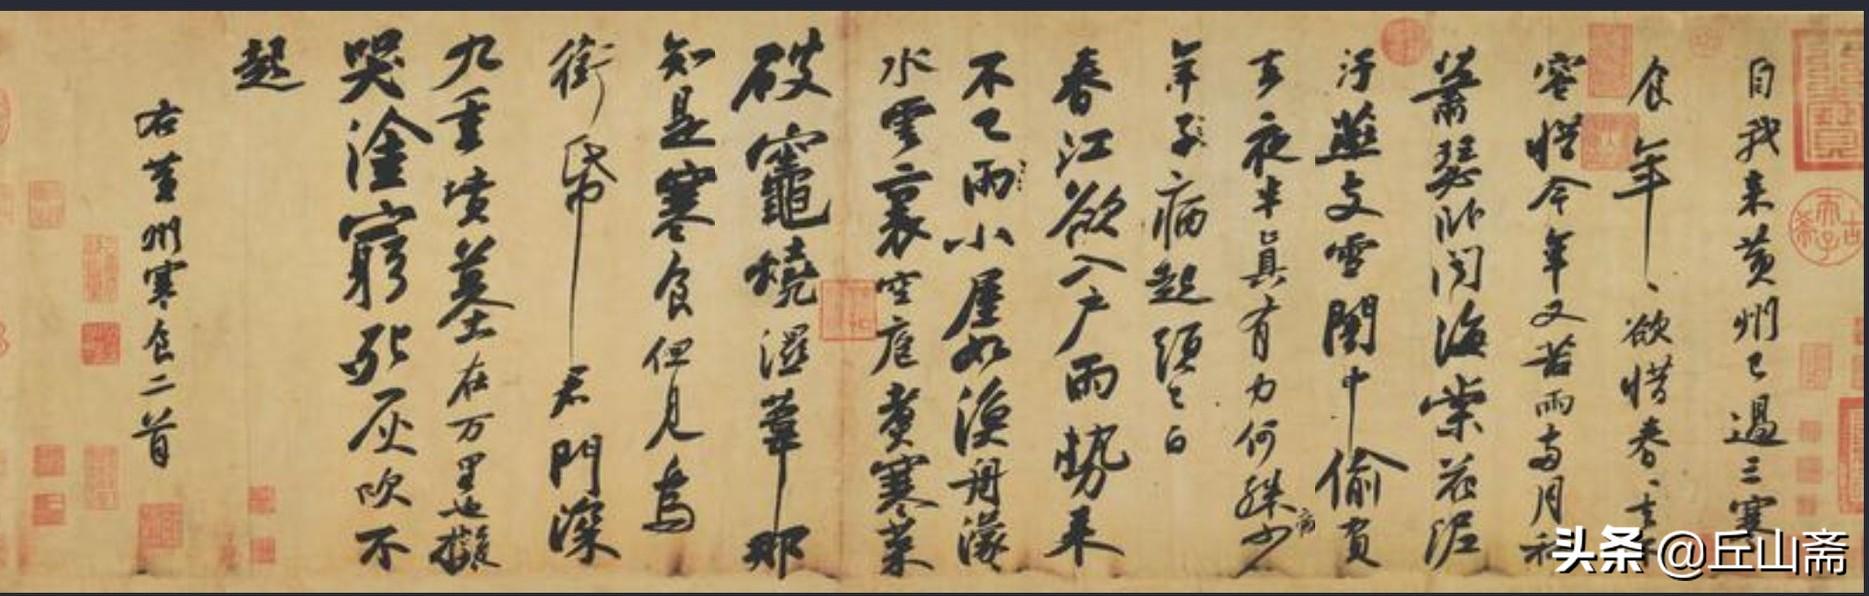 自我来黄州已過三寒
食年、欲惜春、去不
容惜今年又苦雨兩月秋
蕭瑟卧聞海棠花泥
汙燕支雪闇中偷負
去夜半真有力何殊少
年子病起頭已白
春江欲入户雨勢来
不已雨小屋如漁舟濛
水雲裏空庖煮寒菜
破竈燒濕葦那
知是寒食但見烏
銜帋君門深
九重墳墓在万里也擬
哭塗窮死灰吹不
起
右黄州寒食二首
头条 @丘山斋